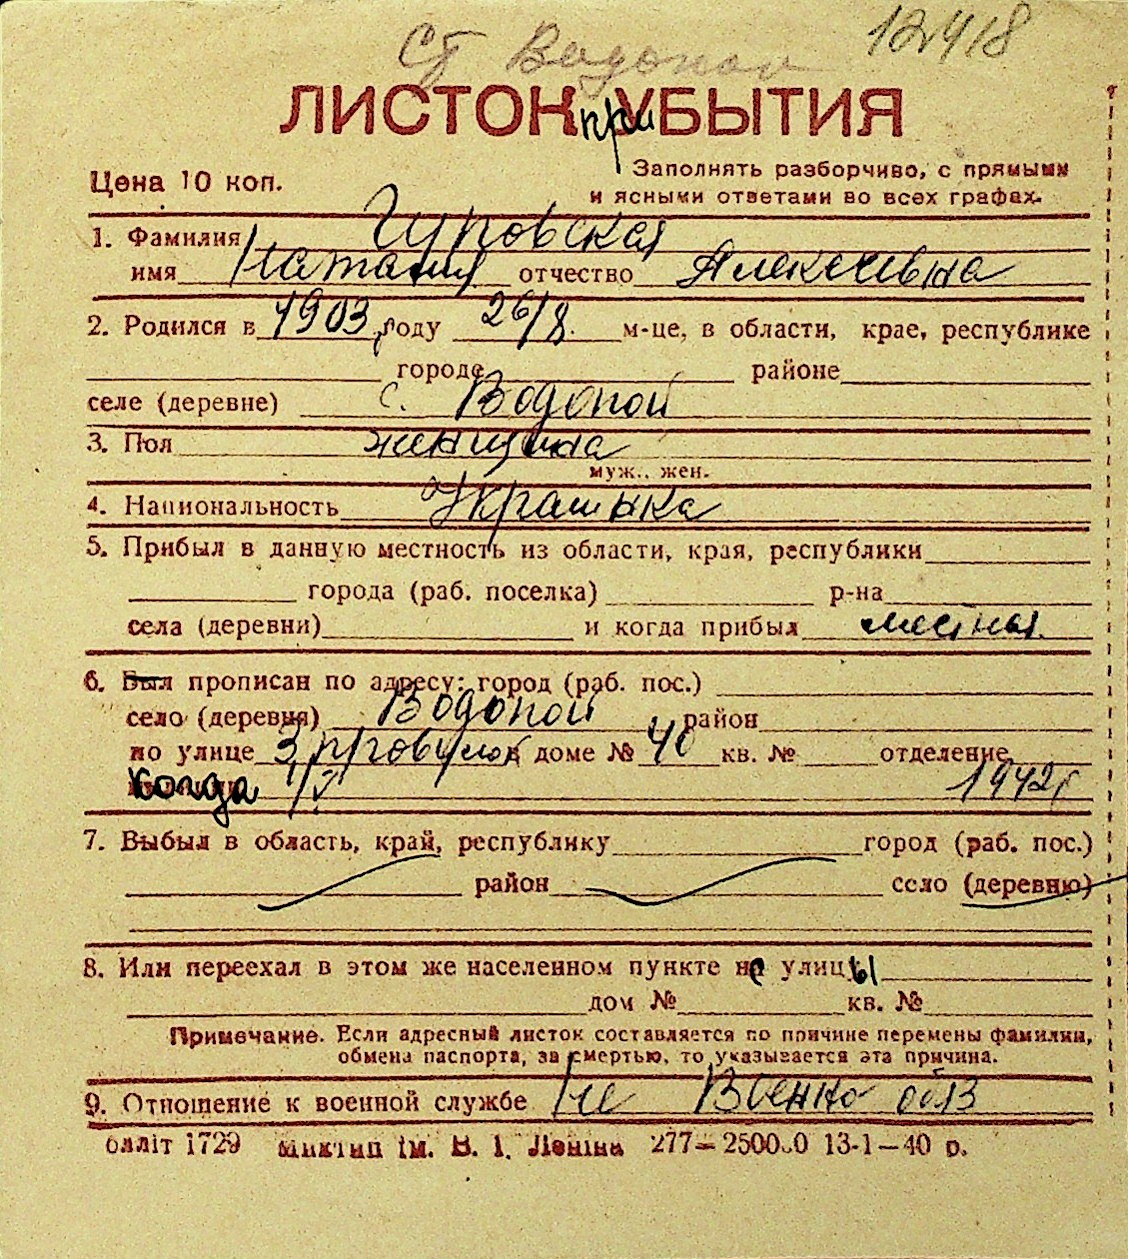 Ст Водопой
12418
ЛИСТОК при УБЫТИЯ
Цена 10 коп.
Заполнять разборчиво, с прямыми
и ясными ответами во всех графах.
1. Фамилия Гуровская
имя Наталия отчество Алексеевна
2. Родился в 1903 году 26/8. м-це, в области, крае, республике
городе районе
селе (деревне) с. Водопой
3. Пол женщина
муж., жен.
4. Национальность Украинка
5. Прибыл в данную местность из области, края, республики
города (раб. поселка) р-на
села (деревни) и когда прибыл местная.
6. Был прописан по адресу: город (раб. пос.)
село (деревня) Водопой район
по улице 3, доме № 40 кв. № отделение
когда 1942г
7. Выбыл в область, край, республику город (раб. пос.)
район село (деревню)
8. Или переехал в этом же населенном пункте с улицы
дом № кв. №
Примечание. Если адресный листок составляется по причине перемены фамилии,
обмена паспорта, за смертью, то указывается эта причина.
9. Отношение к военной службе Не Военно обяз
блліт 1729 ім. В. І. Леніна 277— 13-1—40 р.